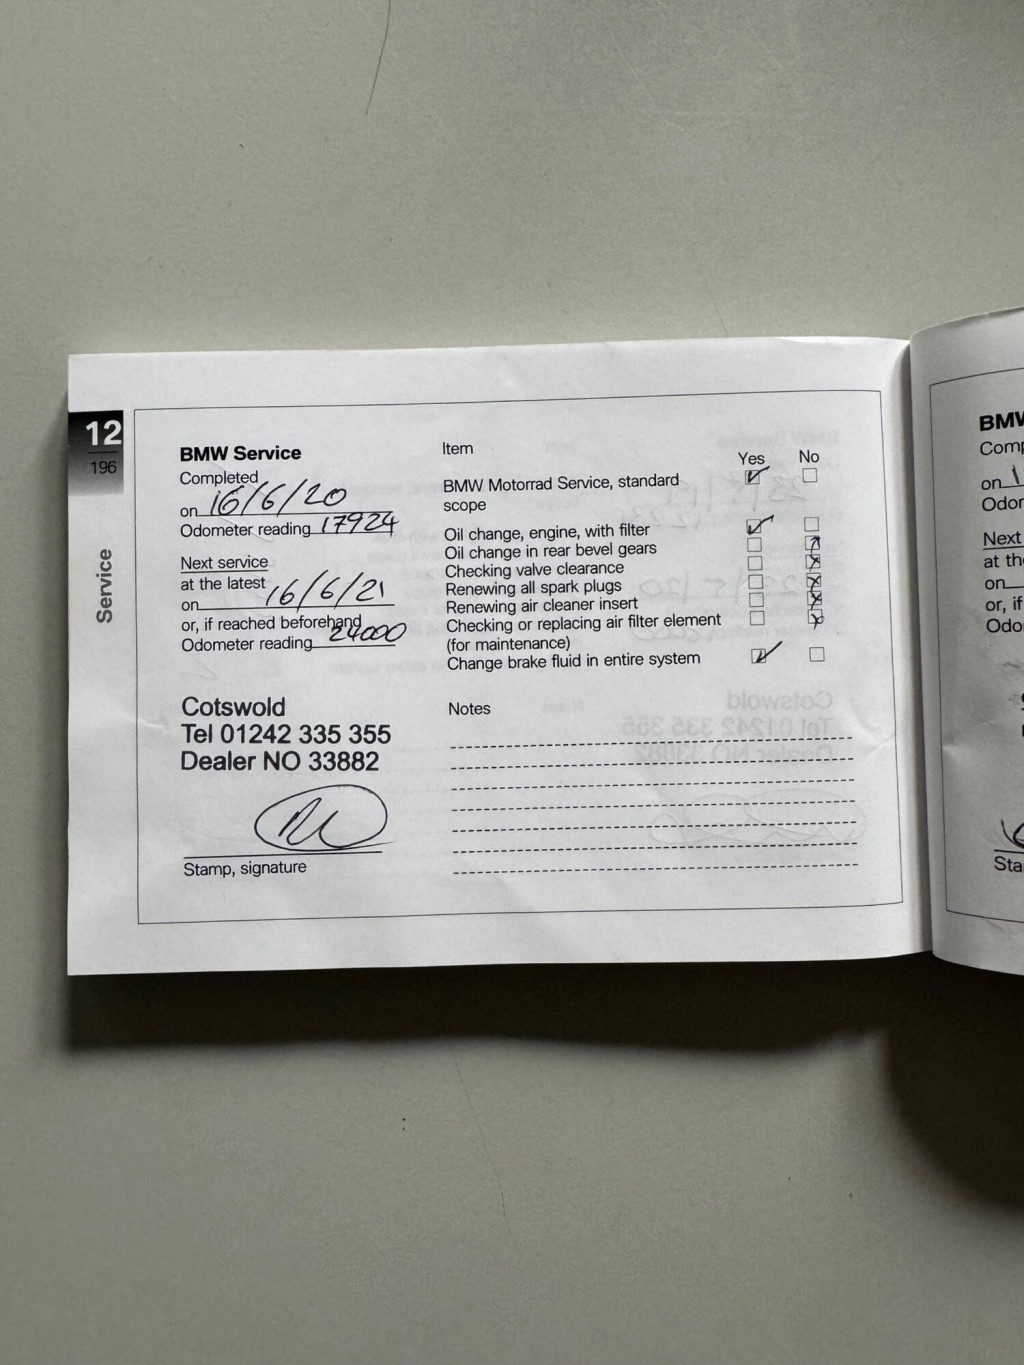 12
196
Service
BMW Service
Completed
on 16/6/20
Odometer reading 17924
Next service
at the latest
on 16/6/21
or, if reached beforehand
Odometer reading 24000
Cotswold
Tel 01242 335 355
Dealer NO 33882
Stamp, signature
Item
Yes No
BMW Motorrad Service, standard
scope
Oil change, engine, with filter
Oil change in rear bevel gears
Checking valve clearance
Renewing all spark plugs
Renewing air cleaner insert
Checking or replacing air filter element
(for maintenance)
Change brake fluid in entire system
Notes
BMW
Comp
on
Odor
Next
at the
on
or, if
Odo
Sta